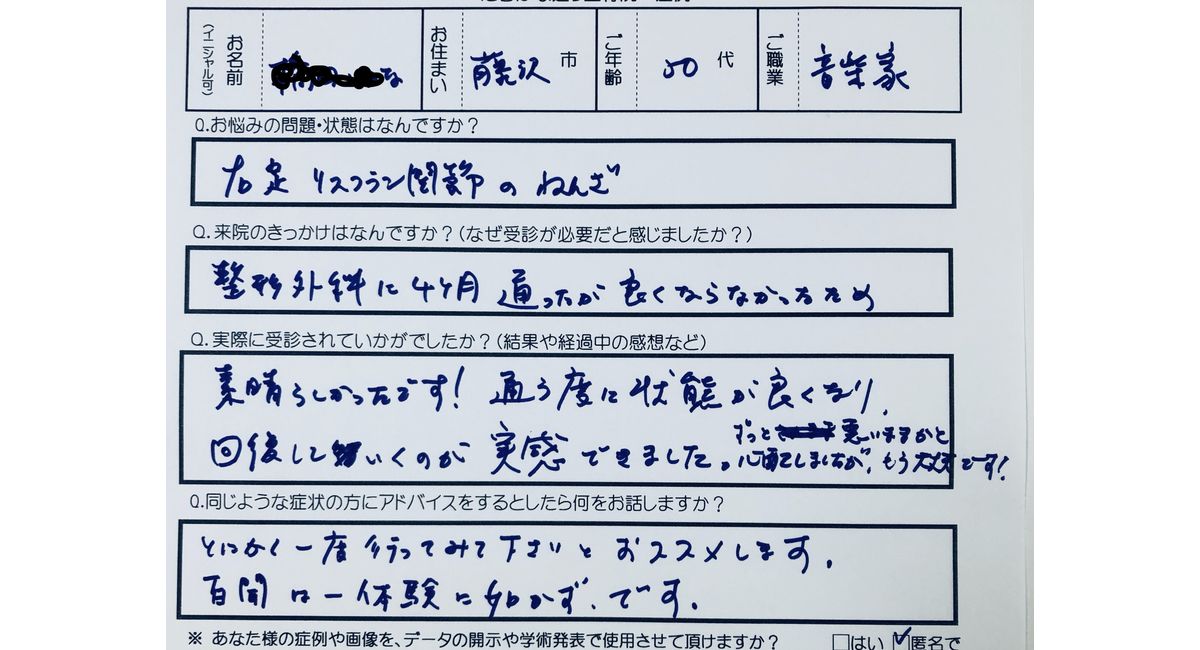 お名前
(イニシャル可)
な
お住まい
藤沢 市
ご年齢
50 代
ご職業
音楽家
Q.お悩みの問題・状態はなんですか?
右足 リスフラン関節の ねんざ
Q.来院のきっかけはなんですか?(なぜ受診が必要だと感じましたか?)
整形外科に4ヶ月 通ったが 良くならなかったため
Q.実際に受診されていかがでしたか?(結果や経過中の感想など)
素晴らしかったです! 通う度に状態が良くなり、
回復していくのが 実感できました。
ずっと 悪いままかと
心配してましたが、もう大丈夫です!
Q.同じような症状の方にアドバイスをするとしたら何をお話しますか?
とにかく一度行ってみて下さいとおススメします。
百聞は一体験に如かず、です。
※ あなた様の症例や画像を、データの開示や学術発表で使用させて頂けますか? □はい ☑匿名で